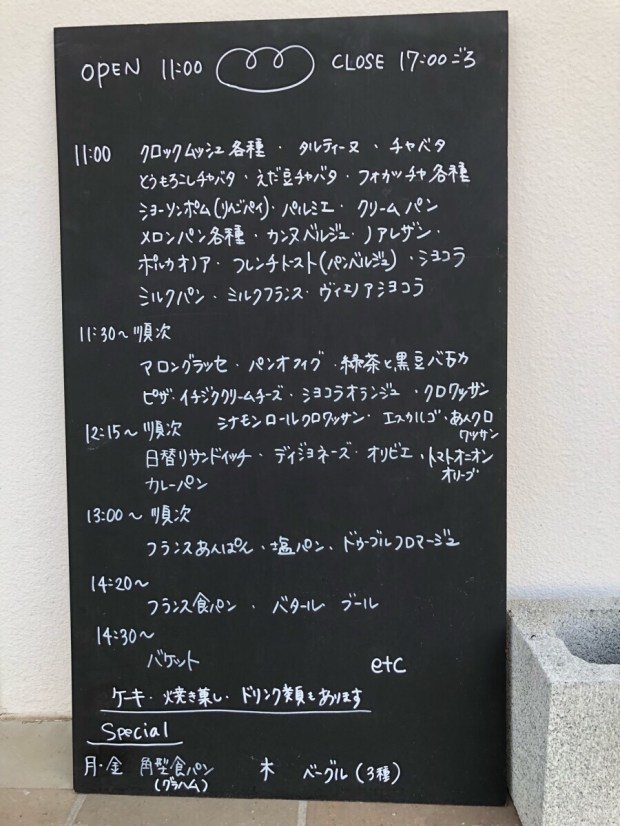 OPEN 11:00 CLOSE 17:00ごろ
11:00 クロックムッシュ各種・タルティーヌ・チャバタ
とうもろこしチャバタ・えだ豆チャバタ・フォカッチャ各種
ショーソンポム(りんごパイ)・パルミエ・クリームパン
メロンパン各種・カンヌベルジュ・ノアレザン・
ポルカオノア・フレンチトースト(パンベルジュ)・ショコラ
ミルクパン・ミルクフランス・ヴィエノアショコラ
11:30〜順次
マロングラッセ・パンオフィグ・緑茶と黒豆バ
ピザ・イチジククリームチーズ・ショコラオランジュ・クロワッサン
シナモンロールクロワッサン・エスカルゴ・あんクロ
ワッサン
12:15〜順次
日替りサンドイッチ・ディジョネーズ・オリビエ・トマトオニオン
オリーブ
カレーパン
13:00〜順次
フランスあんぱん・塩パン・ドゥーブルフロマージュ
14:20〜
フランス食パン・バタール ブール
14:30〜
バケット etc
ケーキ・焼き菓し・ドリンク類もあります
Special
月・金 角型食パン 木 ベーグル(3種)
(グラハム)